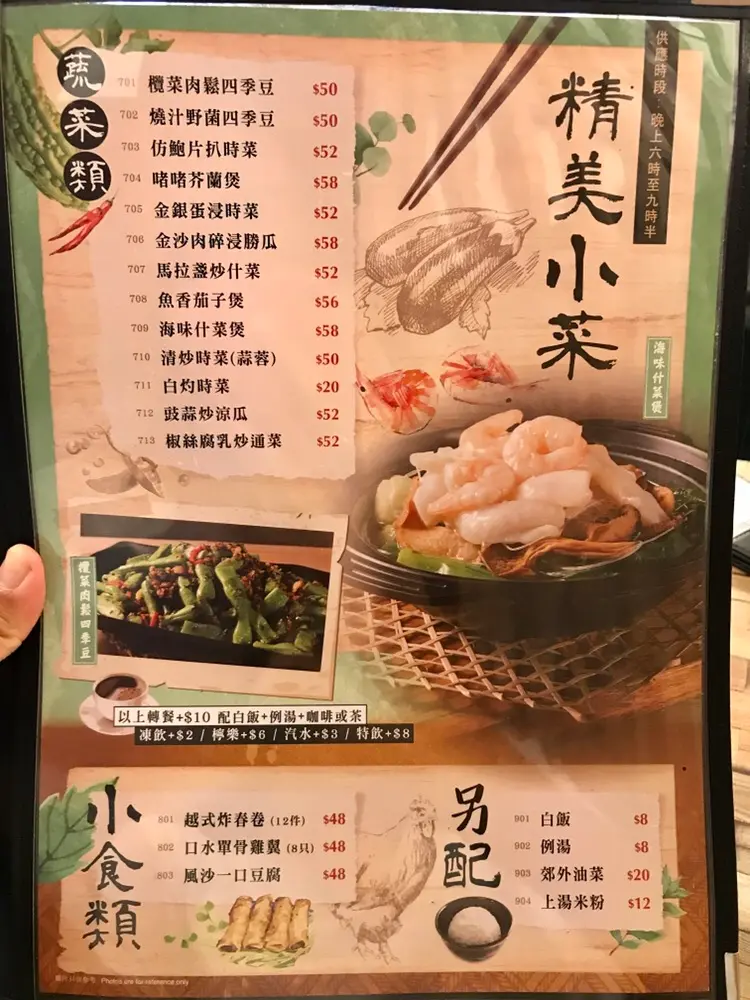 供應時段：晚上六時至九時半
精美小菜
蔬菜類
701 欖菜肉鬆四季豆 $50
702 燒汁野菌四季豆 $50
703 仿鮑片扒時菜 $52
704 啫啫芥蘭煲 $58
705 金銀蛋浸時菜 $52
706 金沙肉碎浸勝瓜 $58
707 馬拉盞炒什菜 $52
708 魚香茄子煲 $56
709 海味什菜煲 $58
710 清炒時菜(蒜蓉) $50
711 白灼時菜 $20
712 豉蒜炒涼瓜 $52
713 椒絲腐乳炒通菜 $52
海味什菜煲
欖菜肉鬆四季豆
以上轉餐+$10 配白飯+例湯+咖啡或茶
凍飲+$2 / 檸樂+$6 / 汽水+$3 / 特飲+$8
小食類
801 越式炸春卷 (12件) $48
802 口水單骨雞翼 (8只) $48
803 風沙一口豆腐 $48
另配
901 白飯 $8
902 例湯 $8
903 郊外油菜 $20
904 上湯米粉 $12
Photos are for reference only